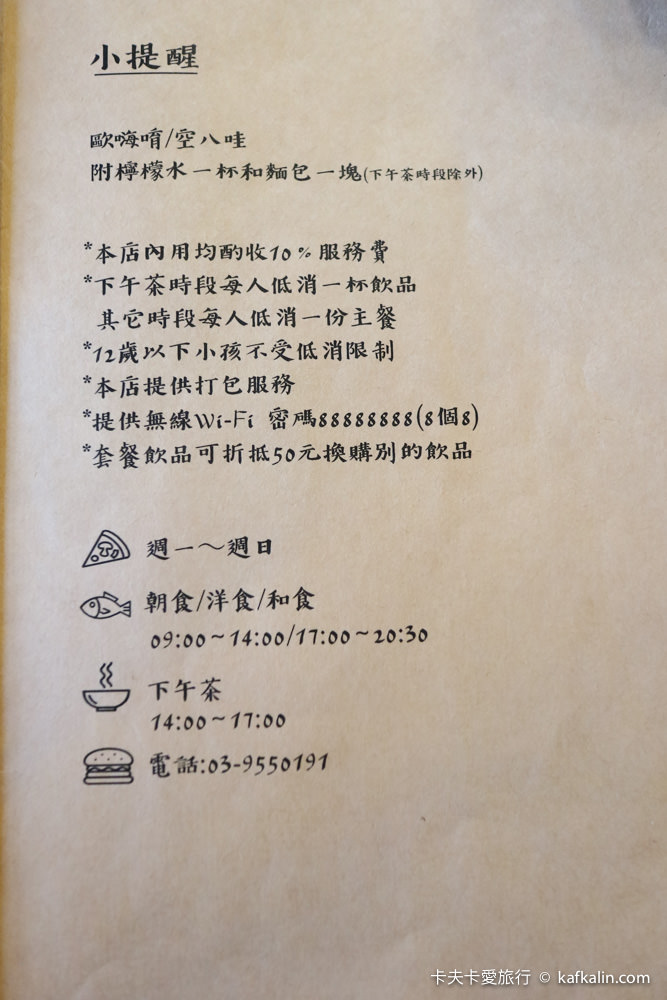 小提醒
歐嗨唷/空八哇
附檸檬水一杯和麵包一塊(下午茶時段除外)
*本店內用均酌收10%服務費
*下午茶時段每人低消一杯飲品
其它時段每人低消一份主餐
*12歲以下小孩不受低消限制
*本店提供打包服務
*提供無線Wi-Fi 密碼88888888(8個8)
*套餐飲品可折抵50元換購別的飲品
週一～週日
朝食/洋食/和食
09:00~14:00/17:00~20:30
下午茶
14:00~17:00
電話:03-9550191
卡夫卡愛旅行 © kafkalin.com